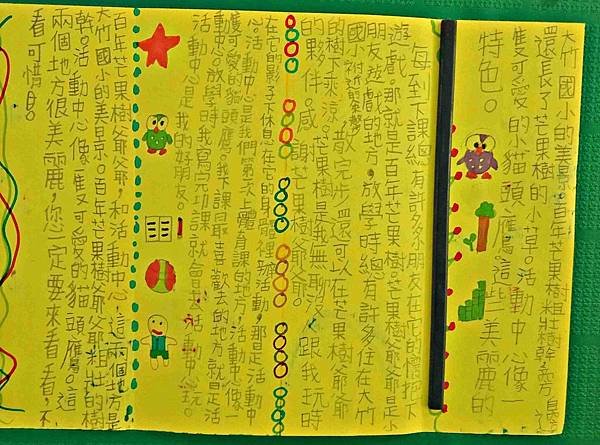 大竹國小的美景。百年芒果樹粗壯樹幹旁
還長了芒果樹的小草。活動中心像一
隻可愛的小貓頭鷹。這些美麗的
特色。
每到下課總有許多小朋友在它的體把下
遊戲。那就是百年芒果樹芒果樹爺爺是小
朋友遊戲的地方,放學時總有許多住在大竹
國小附近的 散完步還可以在芒果樹爺爺
的樹下乘涼。芒果樹是我無聊沒人跟我玩時
的夥伴。感謝芒果樹爺爺。
在它的影子下休息在它的身體裡辦活動,那是活動
心。活動中心是我們第一次上體育課的地方,活動中心像一
隻可愛的貓頭鷹。我下課最喜歡去的地方就是活
動中心。放學時我寫完功課就會去活動中心玩。
活動中心是我的好朋友。
百年芒果樹爺爺,和活動中心,這兩個地方是
大竹國小的美景。百年芒果樹爺爺粗壯的樹
幹。活動中心像隻可愛的貓頭鷹。這
兩個地方很美麗,您一定要來看看,不
看可惜。